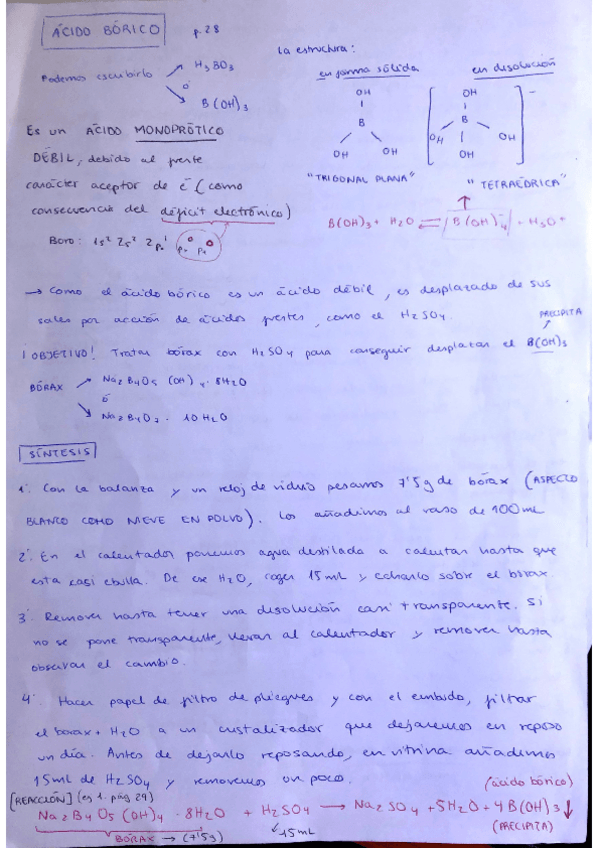 ÁCIDO BÓRICO p.28
Podemos escribirlo
H3BO3
ó
B(OH)3
la estructura:
en forma sólida
en disolución
OH
B
OH OH
OH
B
OH OH
OH
-
"TRIGONAL PLANA"
"TETRAÉDRICA"
B(OH)3 + H2O ⇌ B(OH)4- + H3O+
Es un ÁCIDO MONOPRÓTICO
DÉBIL, debido al fuerte
carácter aceptor de é (como
consecuencia del déficit electrónico)
Boro: 1s2 2s2 2p
→ Como el ácido bórico es un ácido débil, es desplazado de sus
sales por acción de ácidos fuertes, como el H2SO4.
PRECIPITA
¡OBJETIVO! Tratar bórax con H2SO4 para conseguir desplazar el B(OH)3
BÓRAX
Na2B4O5(OH)4 · 8H2O
ó
Na2B4O7 · 10H2O
SÍNTESIS
1º. Con la balanza y un reloj de vidrio pesamos 7'5g de bórax (ASPECTO
BLANCO COMO NIEVE EN POLVO). Los añadimos al vaso de 100mL
2º. En el calentador ponemos agua destilada a calentar hasta que
esta casi ebulla. De ese H2O, coger 15mL y echarlo sobre el bórax.
3º. Remover hasta tener una disolución casi transparente. Si
no se pone transparente, llevar al calentador y remover hasta
observar el cambio.
4º. Hacer papel de filtro de pliegues y con el embudo, filtrar
el borax + H2O a un cristalizador que dejaremos en reposo
un día. Antes de dejarlo reposando, en vitrina añadimos
15mL de H2SO4 y removemos un poco.
(ácido bórico)
[REACCIÓN] (ej 1. pág 29)
Na2B4O5(OH)4 · 8H2O + H2SO4 → Na2SO4 + 5H2O + 4B(OH)3↓
BÓRAX → (7'5g)
15mL
(PRECIPITA)